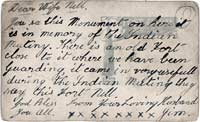 Dear Wife Nell.
You see this Monument on here it
is in memory of the Indian
Mutiny. There is an old Fort
close to it where we have been
Guarding. it came in very usefull
during the Indian Mutiny they
say this Fort Nell.
God Bless From Your Loving Husband
You all. x x x x x x x Jim.